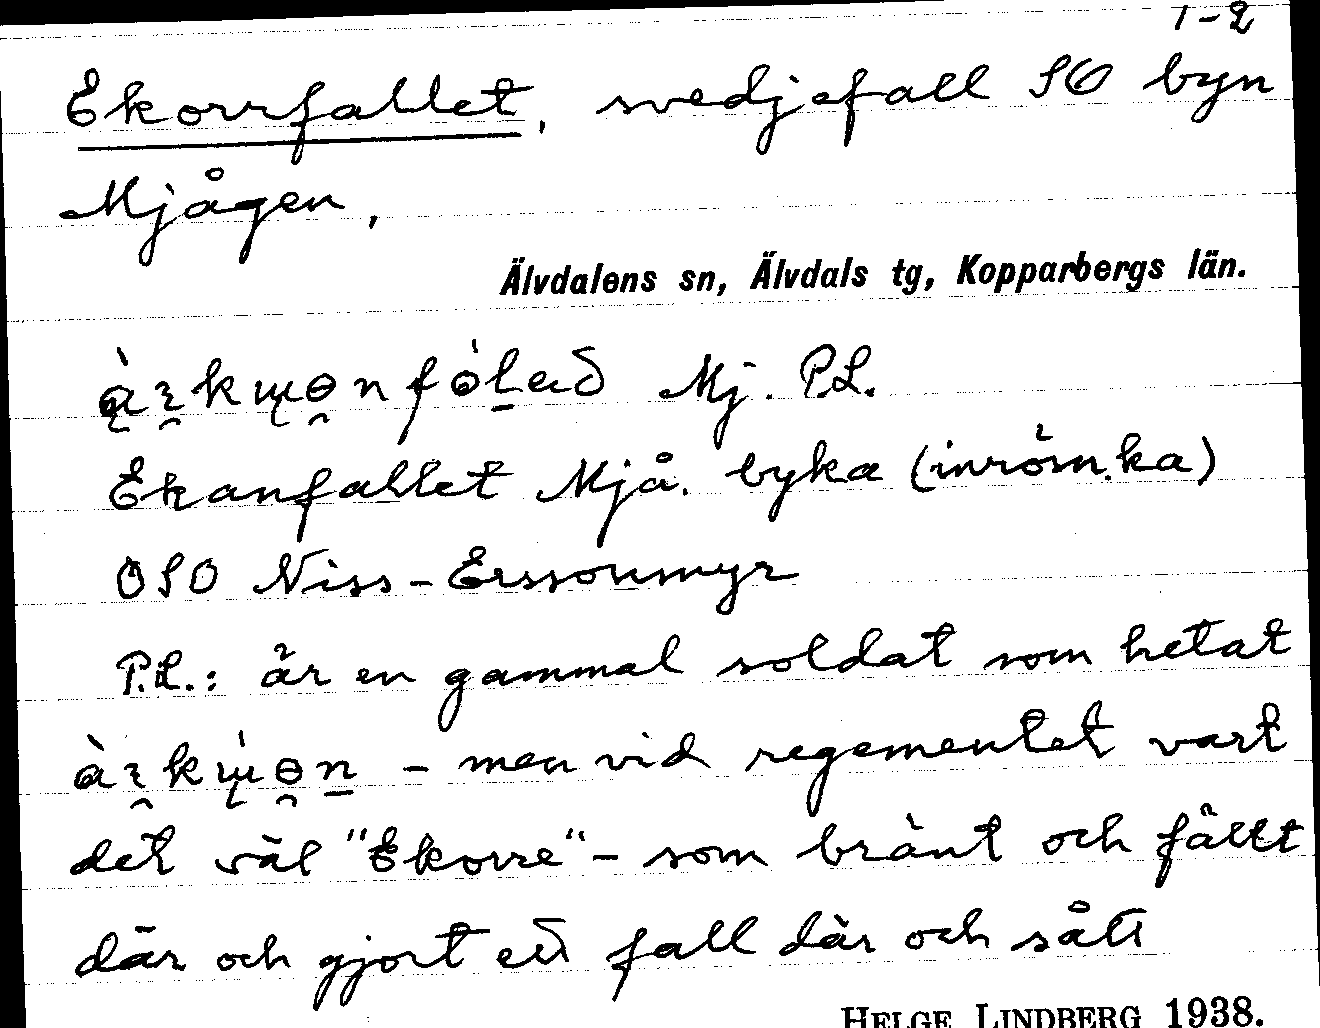 1-2
Ekorrfallet, svedjefall SO byn
Mjågen,
Älvdalens sn, Älvdals tg, Kopparbergs län.
Mj. P.L.
Ekanfallet Mjå. byka (inröm.ka)
OSO Niss-Erssonmyr
P.L.: är en gammal soldat som hetat
- men vid regementet vart
det väl "Ekorre" - som bränt och fällt
där och gjort ett fall där och sått
HELGE LINDBERG 1938.